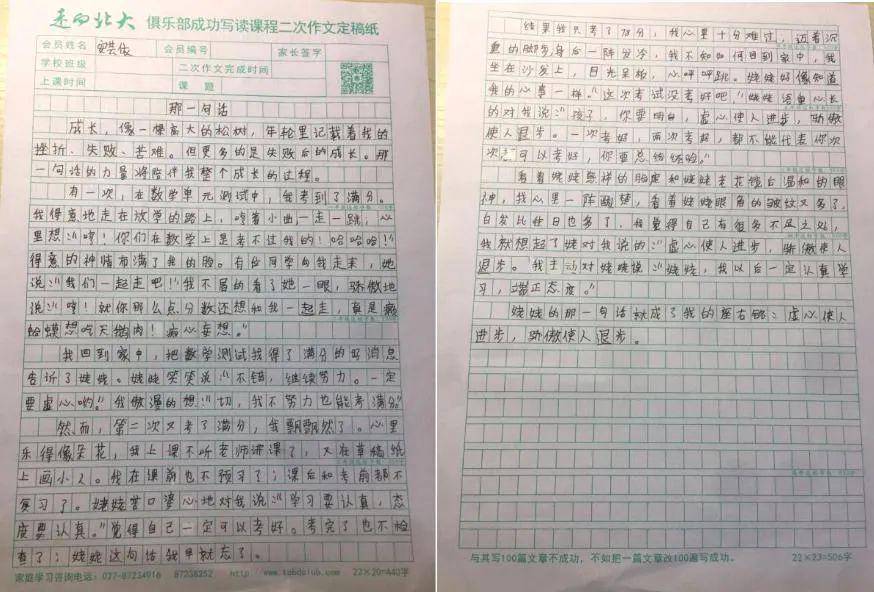 走向北大 俱乐部成功写读课程二次作文定稿纸
会员姓名 会员编号 家长签字
学校班级 二次作文完成时间
上课时间 课题
那一句话
成长，像一棵高大的松树，年轮里记载着我的
挫折、失败、苦难。但更多的是失败后的成长。那
一句话的力量将陪伴我整个成长的过程。
有一次，在数学单元测试中，我考到了满分。
我得意地走在放学的路上，哼着小曲，一走一跳，心
里想：“哼！你们在数学上是考不过我的！哈哈哈！”
得意的神情布满了我的脸。有位同学向我走来，她
说：“我们一起走吧！”我不屑的看了她一眼，骄傲地
说：“哼！就你那么点分数还想和我一起走，真是癞
蛤蟆想吃天鹅肉！痴心妄想。”
我回到家中，把数学测试我得了满分的好消息
告诉了姥姥。姥姥笑笑说：“不错，继续努力。一定
要虚心哟。”我傲漫的想：“切，我不努力也能考满分。”
然而，第二次又考了满分，我飘飘然了。心里
乐得像朵花，我上课不听老师讲课了，又在草稿纸
上画小人。我在课前也不预习了；课后和考前都不
复习了。姥姥苦口婆心地对我说：“学习要认真，态
度要认真。”觉得自己一定可以考好。考完了也不检
查了；姥姥这句话我早就忘了。
家庭学习咨询电话：027-87234916 87238252 22×20=440字
结果我只考了78分，我心里十分难过，迈着沉
重的脚步，身后一阵发冷，我不知如何回到家中，我
坐在沙发上，目光呆板，心呯呯跳。姥姥好像知道
我的心事一样。“这次考试没考好吧，”姥姥语重心长
的对我说：“孩子，你要明白，虚心使人进步，骄傲
使人退步。一次考好，两次考好，都不能代表你次
次可以考好，你要总结经验。”
看着姥姥慈祥的脸庞和姥姥老花镜后温和的眼
神，我心里一阵酸楚，看着姥姥眼角的皱纹又多了，
白发比往日也多了，我觉得自己有很多不足之处，
我就想起了姥对我说的：“虚心使人进步，骄傲使人
退步。”我主动对姥姥说：“姥姥，我以后一定认真学
习，端正态度。”
姥姥的那一句话就成了我的座右铭：虚心使人
进步，骄傲使人退步。
与其写100篇文章不成功，不如把一篇文章改100遍写成功。 22×23=506字